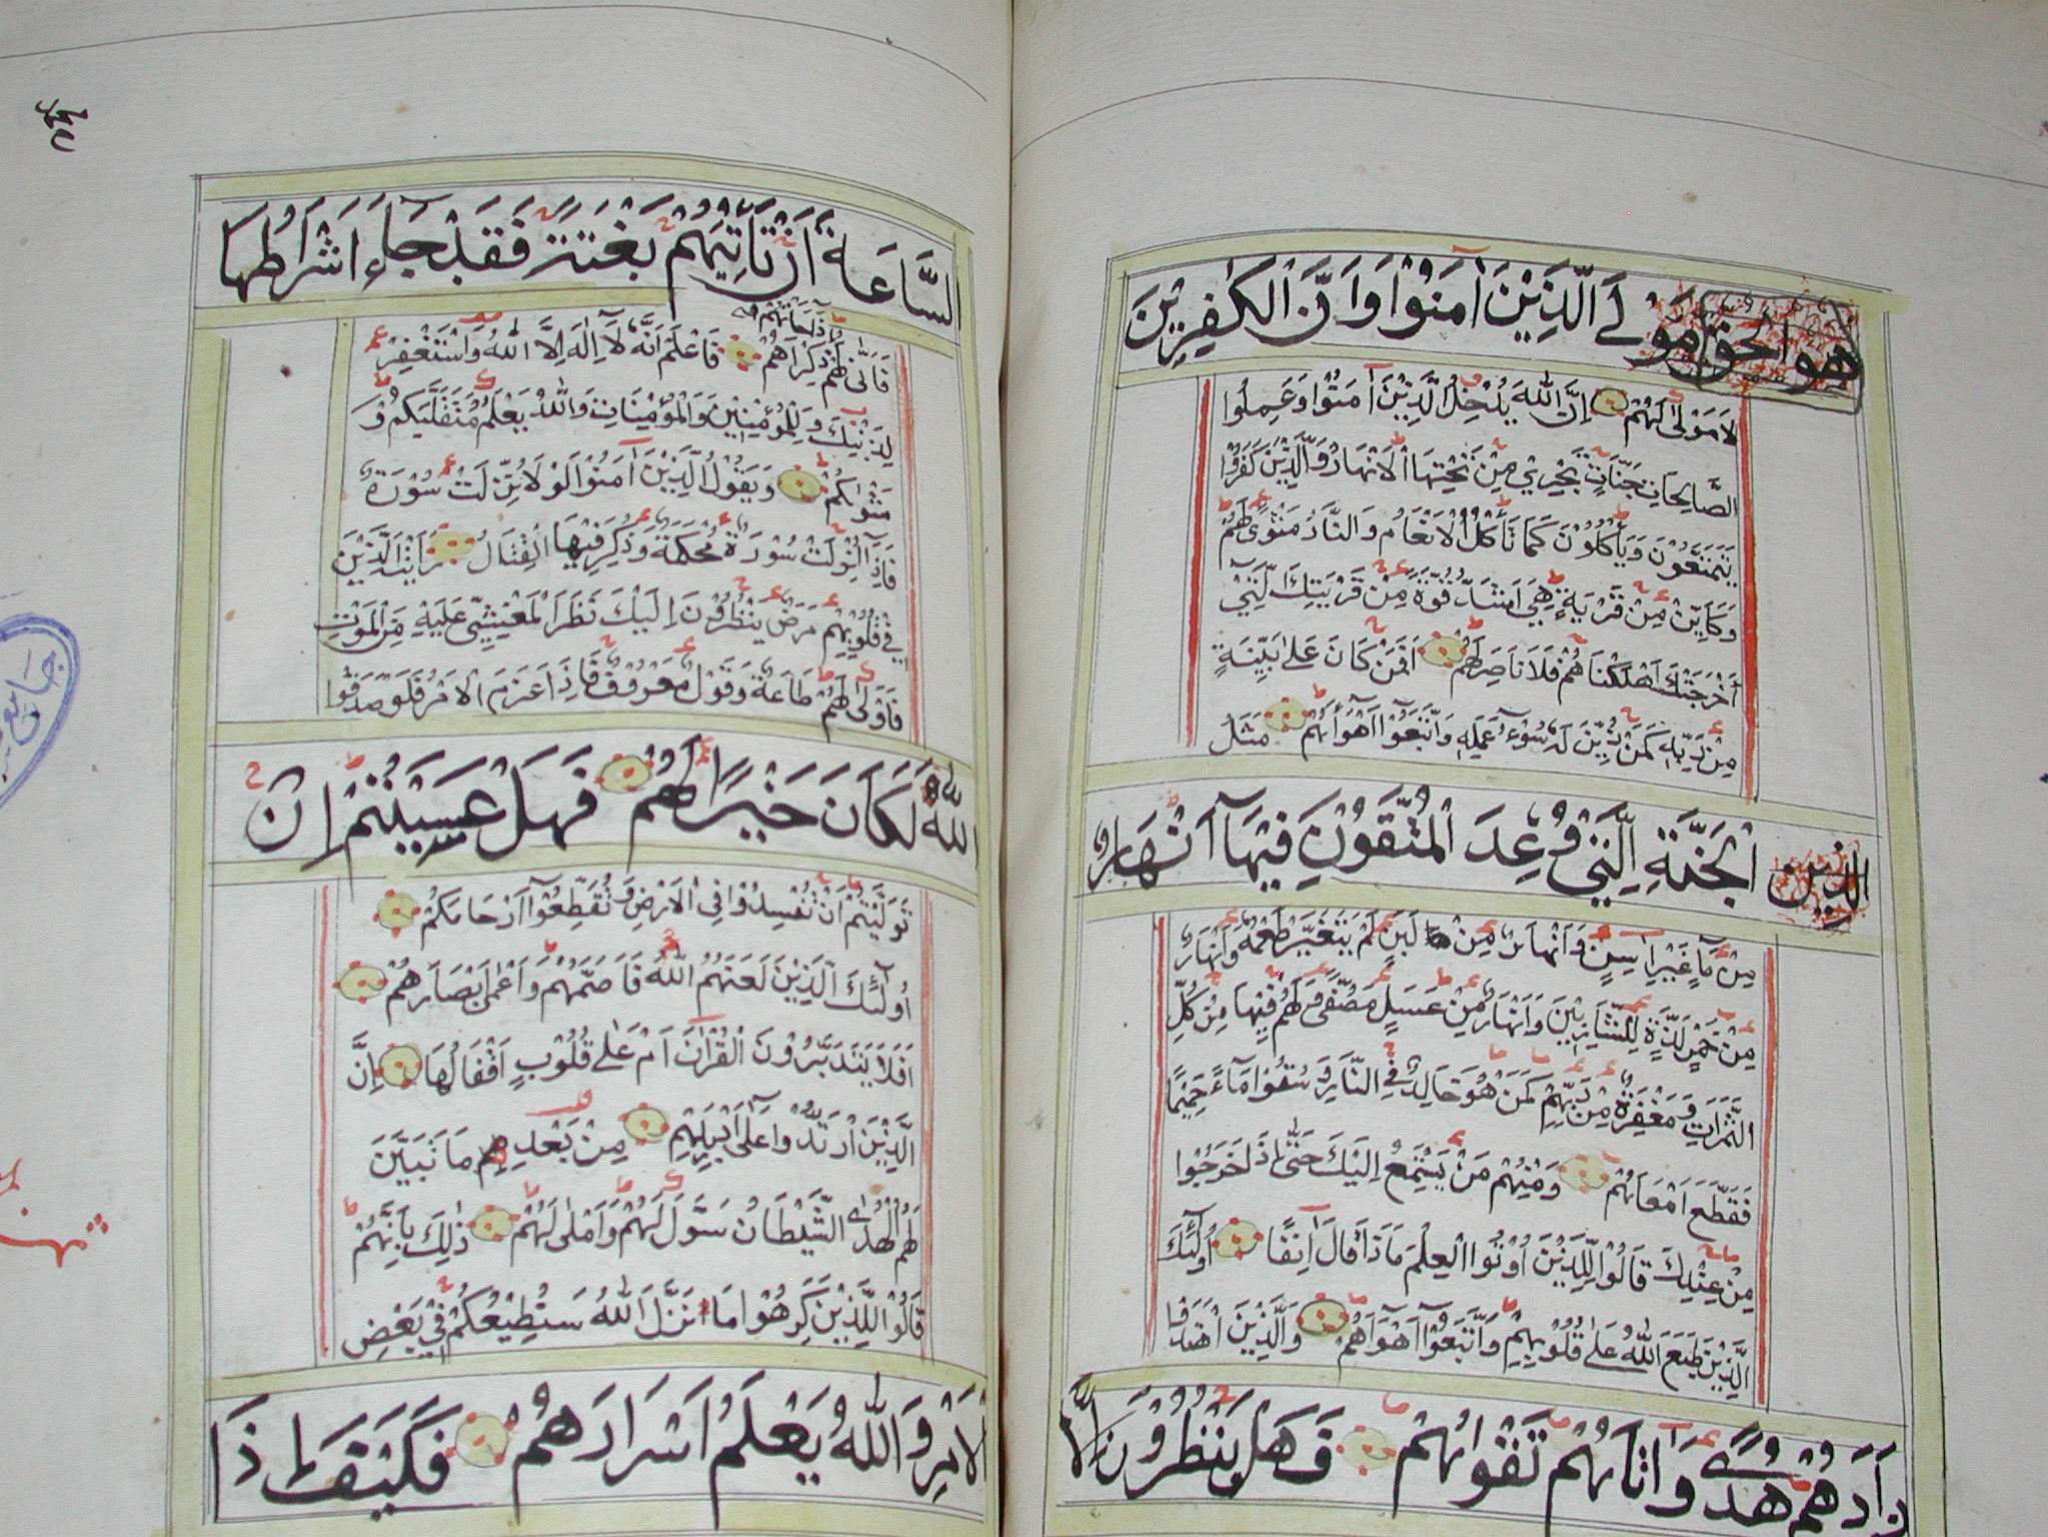 هو الحق مَوْلَى الَّذِيْنَ اٰمَنُوْا وَاَنَّ الْكٰفِرِيْنَ
لَا مَوْلٰى لَهُمْ اِنَّ اللّٰهَ يُدْخِلُ الَّذِيْنَ اٰمَنُوْا وَعَمِلُوا
الصَّالِحَاتِ جَنَّاتٍ تَجْرِيْ مِنْ تَحْتِهَا الْاَنْهَارُ وَالَّذِيْنَ كَفَرُوْا
يَتَمَتَّعُوْنَ وَيَأْكُلُوْنَ كَمَا تَأْكُلُ الْاَنْعَامُ وَالنَّارُ مَثْوًى لَهُمْ
وَكَاَيِّنْ مِنْ قَرْيَةٍ هِيَ اَشَدُّ قُوَّةً مِنْ قَرْيَتِكَ الَّتِيْ
اَخْرَجَتْكَ اَهْلَكْنَاهُمْ فَلَا نَاصِرَ لَهُمْ اَفَمَنْ كَانَ عَلٰى بَيِّنَةٍ
مِنْ رَبِّهِ كَمَنْ زُيِّنَ لَهُ سُوْٓءُ عَمَلِهِ وَاتَّبَعُوْٓا اَهْوَآئَهُمْ مَثَلُ
الذين الْجَنَّةِ الَّتِيْ وُعِدَ الْمُتَّقُوْنَ فِيْهَآ اَنْهَارٌ
مِنْ مَآءٍ غَيْرِ اٰسِنٍ وَاَنْهَارٌ مِنْ لَبَنٍ لَمْ يَتَغَيَّرْ طَعْمُهُ وَاَنْهَارٌ
مِنْ خَمْرٍ لَذَّةٍ لِلشَّارِبِيْنَ وَاَنْهَارٌ مِنْ عَسَلٍ مُصَفًّى وَلَهُمْ فِيْهَا مِنْ كُلِّ
الثَّمَرَاتِ وَمَغْفِرَةٌ مِنْ رَبِّهِمْ كَمَنْ هُوَ خَالِدٌ فِي النَّارِ وَسُقُوْا مَآءً حَمِيْمًا
فَقَطَّعَ اَمْعَآئَهُمْ وَمِنْهُمْ مَنْ يَسْتَمِعُ اِلَيْكَ حَتّٰى اِذَا خَرَجُوْا
مِنْ عِنْدِكَ قَالُوْا لِلَّذِيْنَ اُوْتُوا الْعِلْمَ مَاذَا قَالَ اٰنِفًا اُولٰٓئِكَ
الَّذِيْنَ طَبَعَ اللّٰهُ عَلٰى قُلُوْبِهِمْ وَاتَّبَعُوْٓا اَهْوَآءَهُمْ وَالَّذِيْنَ اهْتَدَوْا
زَادَهُمْ هُدًى وَاٰتَاهُمْ تَقْوٰىهُمْ فَهَلْ يَنْظُرُوْنَ اِلَّا
السَّاعَةَ اَنْ تَاْتِيَهُمْ بَغْتَةً فَقَدْ جَآءَ اَشْرَاطُهَا
فَاَنّٰى لَهُمْ اِذَا جَآءَتْهُمْ ذِكْرَاهُمْ فَاعْلَمْ اَنَّهُ لَآ اِلٰهَ اِلَّا اللّٰهُ وَاسْتَغْفِرْ
لِذَنْبِكَ وَلِلْمُؤْمِنِيْنَ وَالْمُؤْمِنَاتِ وَاللّٰهُ يَعْلَمُ مُتَقَلَّبَكُمْ وَ
مَثْوٰىكُمْ وَيَقُوْلُ الَّذِيْنَ اٰمَنُوْا لَوْلَا نُزِّلَتْ سُوْرَةٌ
فَاِذَآ اُنْزِلَتْ سُوْرَةٌ مُحْكَمَةٌ وَذُكِرَ فِيْهَا الْقِتَالُ رَاَيْتَ الَّذِيْنَ
فِيْ قُلُوْبِهِمْ مَرَضٌ يَنْظُرُوْنَ اِلَيْكَ نَظَرَ الْمَغْشِيِّ عَلَيْهِ مِنَ الْمَوْتِ
فَاَوْلٰى لَهُمْ طَاعَةٌ وَقَوْلٌ مَعْرُوْفٌ فَاِذَا عَزَمَ الْاَمْرُ فَلَوْ صَدَقُوا
اللّٰهَ لَكَانَ خَيْرًا لَهُمْ فَهَلْ عَسَيْتُمْ اِنْ
تَوَلَّيْتُمْ اَنْ تُفْسِدُوْا فِي الْاَرْضِ وَتُقَطِّعُوْٓا اَرْحَامَكُمْ
اُولٰٓئِكَ الَّذِيْنَ لَعَنَهُمُ اللّٰهُ فَاَصَمَّهُمْ وَاَعْمٰى اَبْصَارَهُمْ
اَفَلَا يَتَدَبَّرُوْنَ الْقُرْاٰنَ اَمْ عَلٰى قُلُوْبٍ اَقْفَالُهَا اِنَّ
الَّذِيْنَ ارْتَدُّوْا عَلٰٓى اَدْبَارِهِمْ مِنْ بَعْدِ مَا تَبَيَّنَ
لَهُمُ الْهُدَى الشَّيْطَانُ سَوَّلَ لَهُمْ وَاَمْلٰى لَهُمْ ذٰلِكَ بِاَنَّهُمْ
قَالُوْا لِلَّذِيْنَ كَرِهُوْا مَا نَزَّلَ اللّٰهُ سَنُطِيْعُكُمْ فِيْ بَعْضِ
الْاَمْرِ وَاللّٰهُ يَعْلَمُ اِسْرَارَهُمْ فَكَيْفَ اِذَا